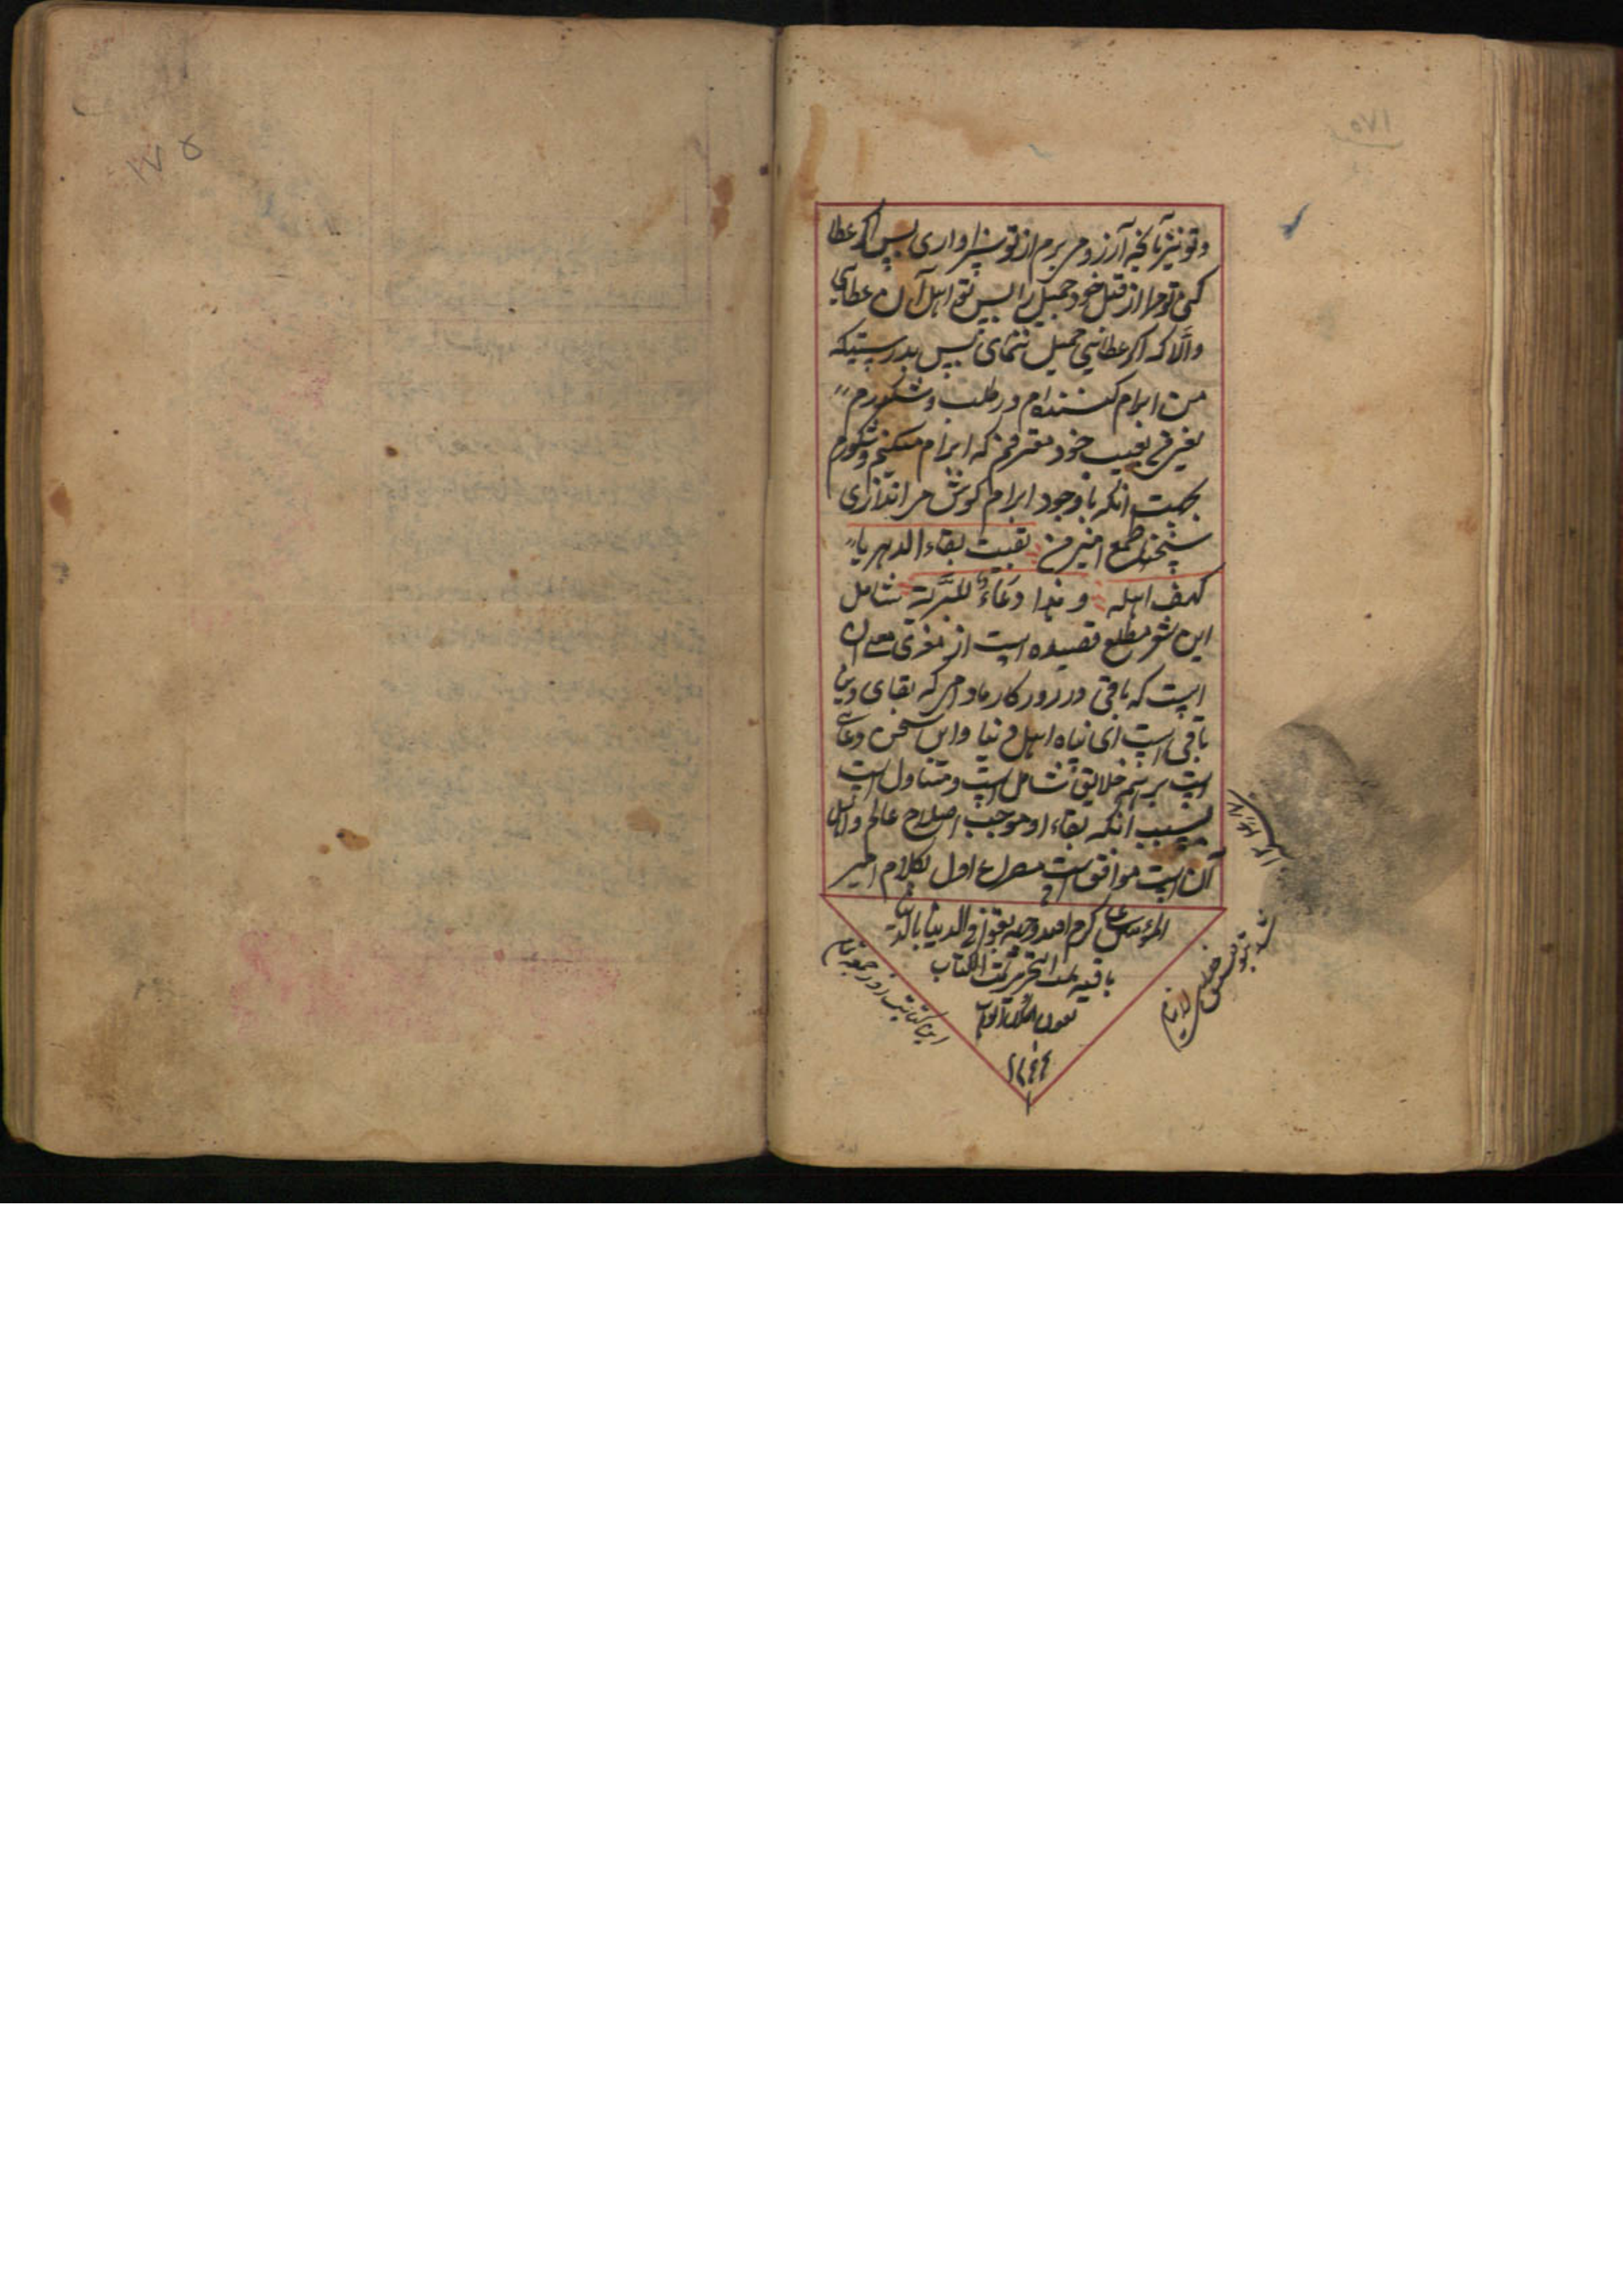 و تو نیز بانچه آرزو میبرم از تو سزاواری پس اکر عطا
کنی تو مرا از قبل خود جمیل را پس تو اهل آن عطایی
والّا که اکر عطایی جمیل ننمای پس بدرستیکه
من ابرام کننده‌ام در طلب و شکورم
یعنی بعیب خود معترفم که ابرام میکنم و شکورم
بجهت انکه با وجود ابرام کوش می اندازی
سخن طمع امیز من بقیت بقاء الدهر یا
کهف اهله و هذا دعاءٌ للبَرِیّة شامل
این شعر مطلع قصیده است از معرّی معنی ان
است که باقی در روزکار مادامی که بقای دنیا
باقی است ای پناه اهل دنیا و این سخن دعای
است بر همه خلایق شامل است و متناول است
بسبب انکه بقاء او موجب اصلاح عالم و اهل
آن است موافق است مصراع اول بکلام امیر
المؤمنین علی کرم الله وجهه یفوز فی الدنیا بالذی
باقیه تمت التحریر تمت الکتاب
بعون الملک الوهاب
۱۲۴۴
این کتابت روز جمعه تمام
شد بتوفیق
۱۷۵
۱۷۵